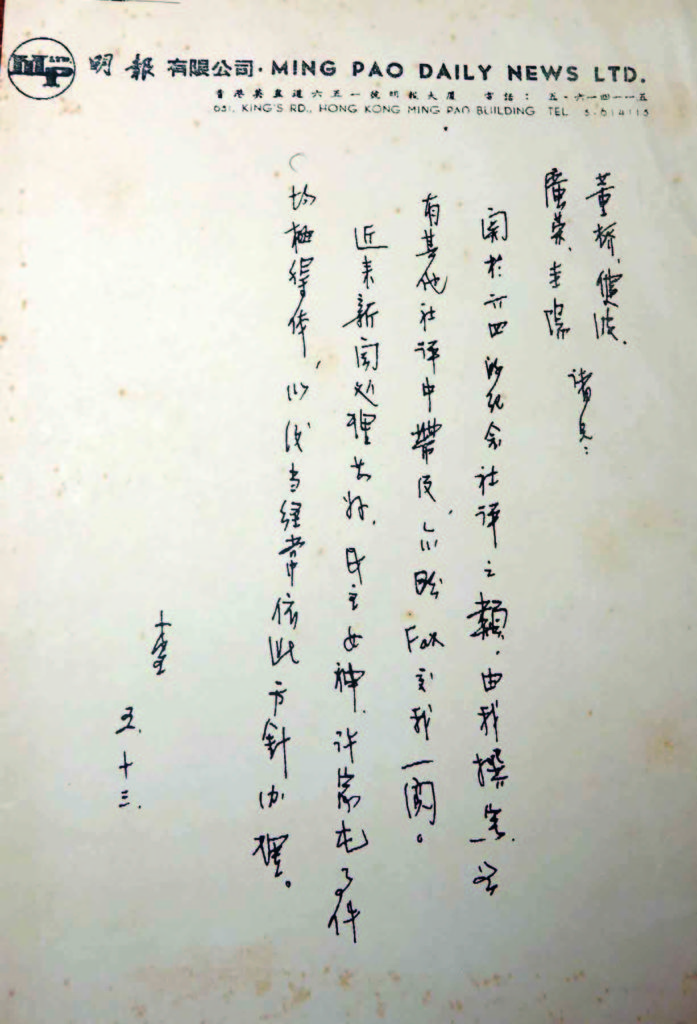 MP LTD.
明報 有限公司・MING PAO DAILY NEWS LTD.
香港英皇道六五一號明報大廈 電話：五・六一四一一五
651, KING'S RD., HONG KONG MING PAO BUILDING TEL 5-614115
董桥、健波、
廣荣、圭陽
诸兄：
関於六四的纪念社评之類，由我撰寫、若
有其他社评中帶及，亦盼Fax交我一閱。
近来新闻处理甚好，民主女神、许家屯事件
均極得体，以後当経常依此方針办理。
查
五、十三、